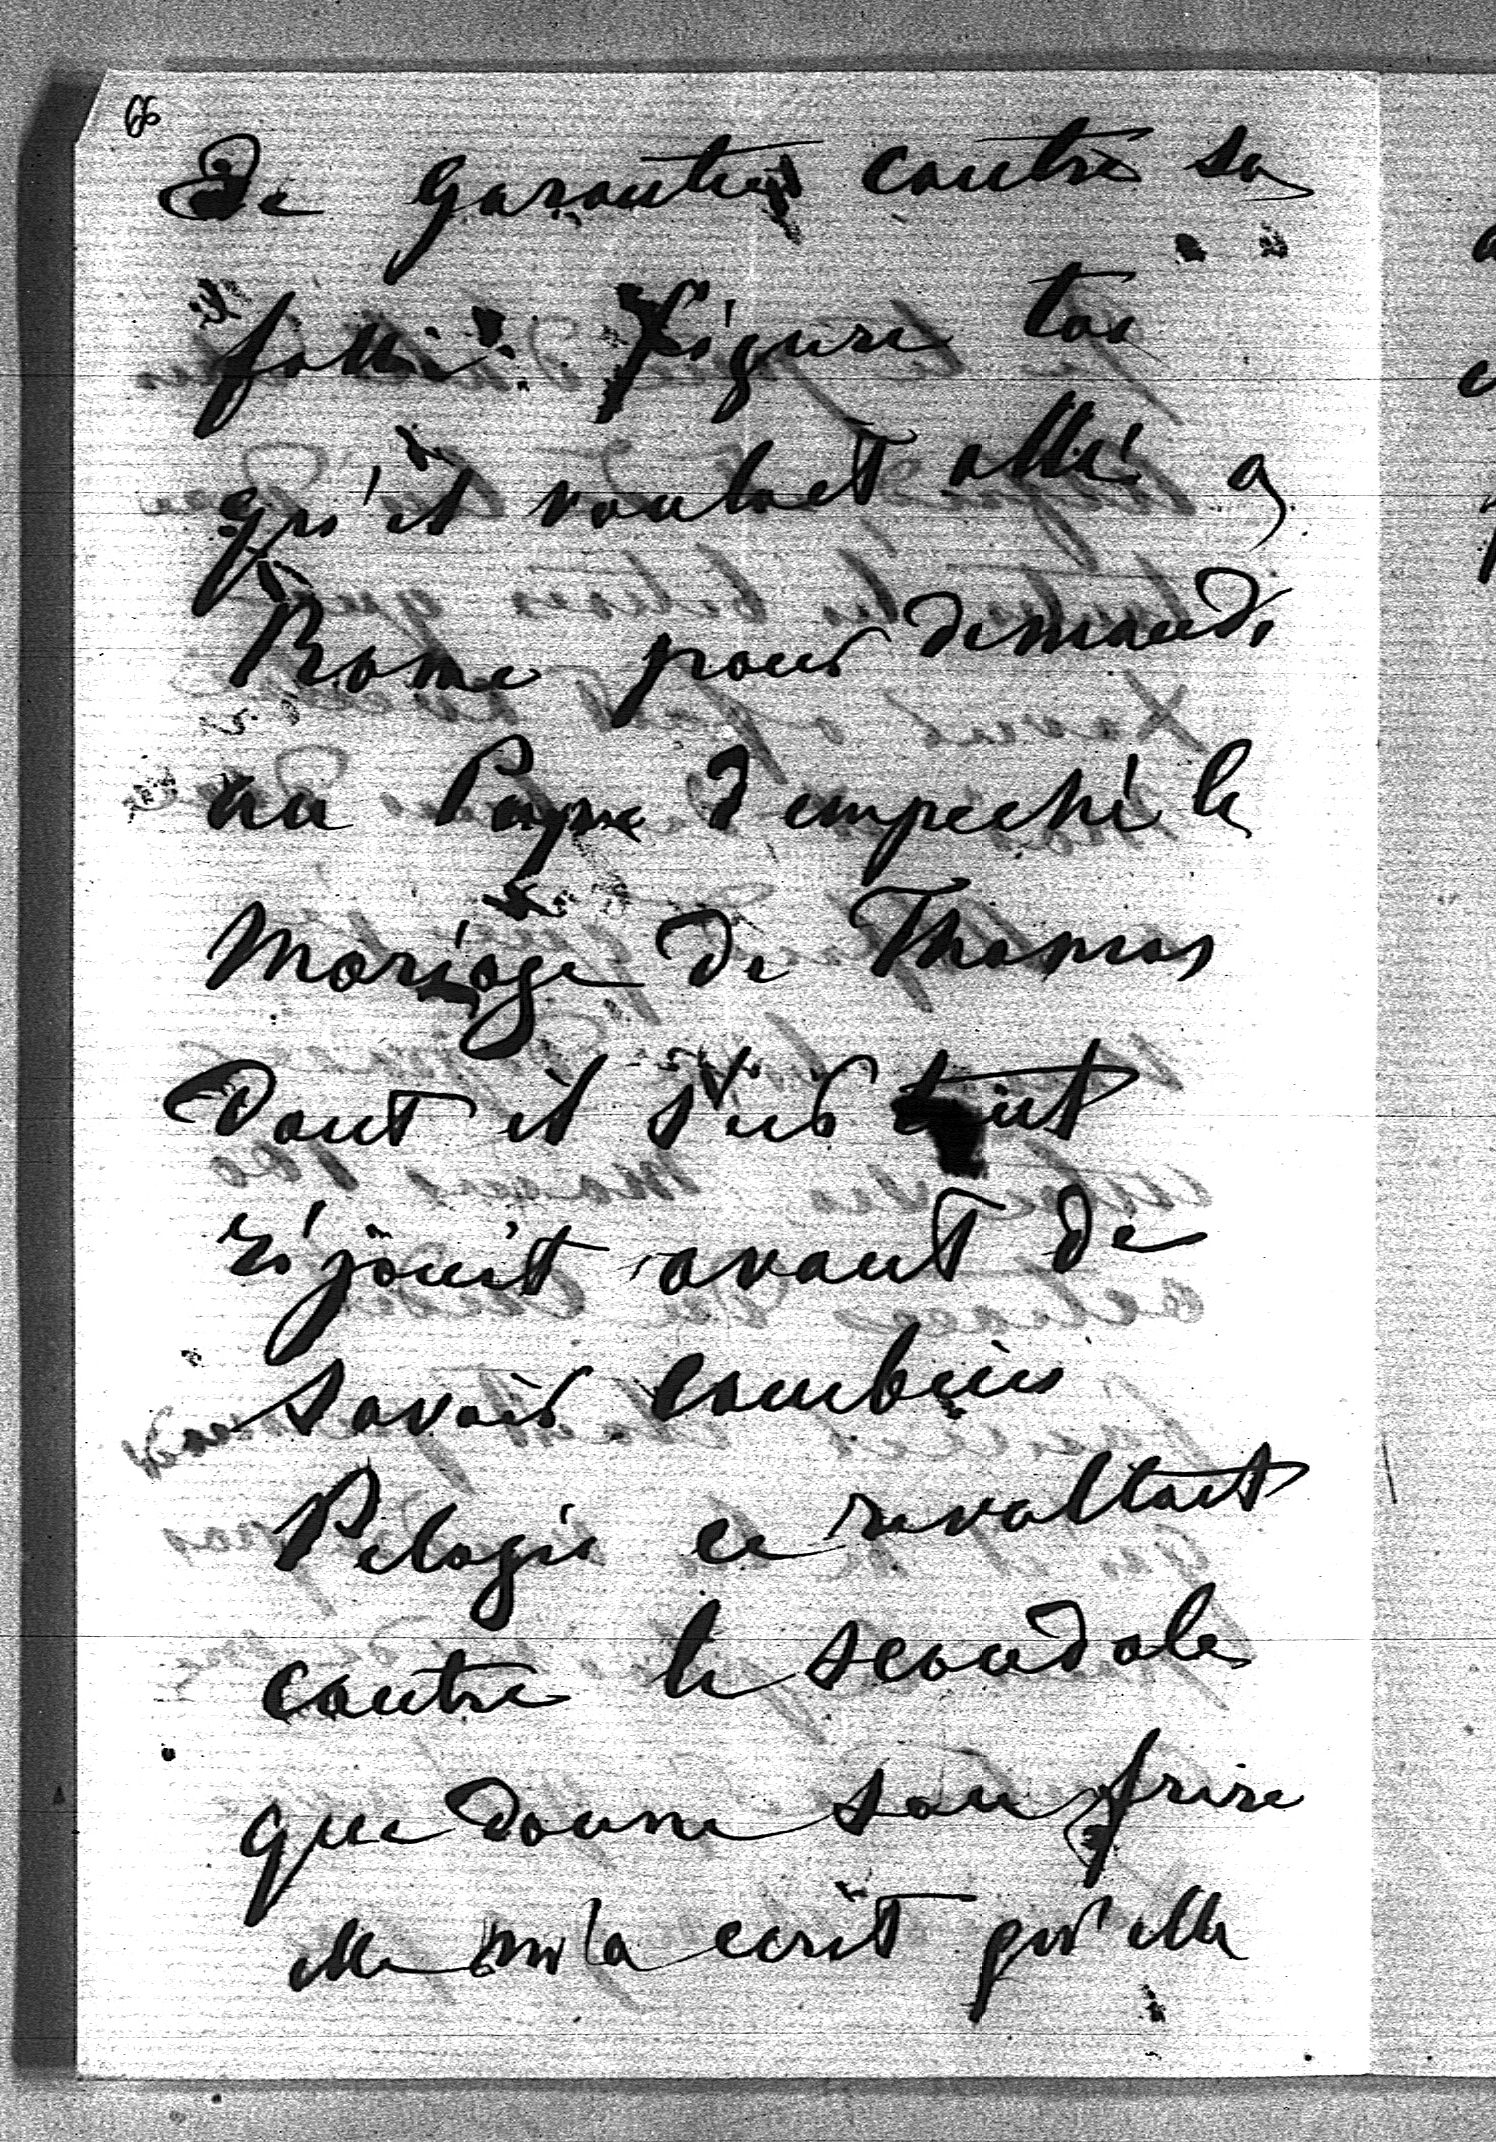 66
De garantie contre sa
folie. Figure toi
qu'il voulait allé a
Rome pour demandé
au Pape d'empeché le
Mariage de Thomas
dont il s'es tout
réjouit avant de
savoir combien
Pelagie ce revoltait
contre le scandale
que donne son frere
elle m'a ecrit qu'elle